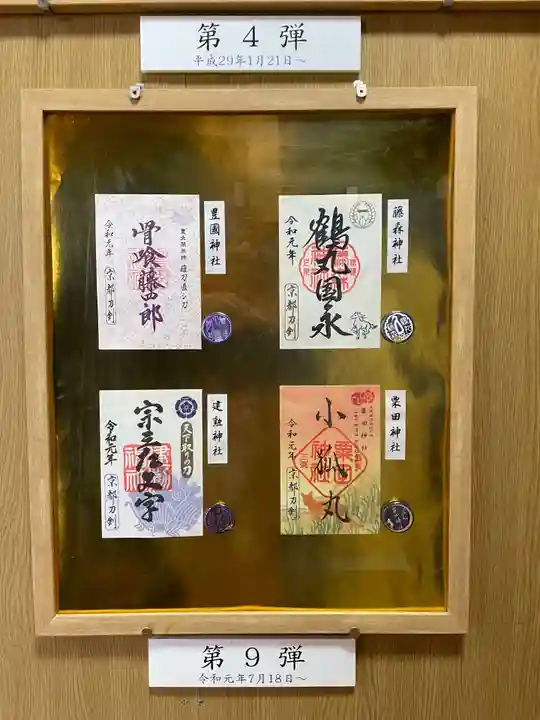 第4弾
平成29年1月21日～
豊國神社
骨喰藤四郎
令和元年
京都刀剣
藤森神社
鶴丸国永
令和元年
京都刀剣
建勲神社
天下取りの刀
宗三左文字
令和元年
京都刀剣
粟田神社
粟田神社
小狐丸
令和元年
京都刀剣
第9弾
令和元年7月18日～